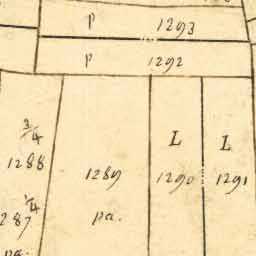 P 1293
P 1292
3/4
1288
1/4
287
pa.
1289
pa.
L
1290
L
1291